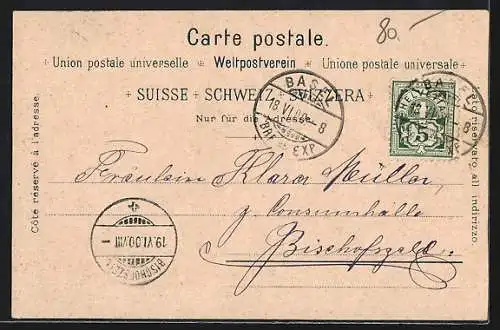 80.-
Carte postale.
Union postale universelle Weltpostverein Unione postale universale
SUISSE SCHWEIZ SVIZZERA
Nur für die Adresse.
Côté réservé à l'adresse.
Lato riservato all' indirizzo.
BASEL
18.VI.00. 8
BRF. EXP
HELVETIA
5
BASEL
Fräulein Klara Müller,
z. Consumhalle
Bischofszell.
19.VI.00.VIII
BISCHOFSZELL